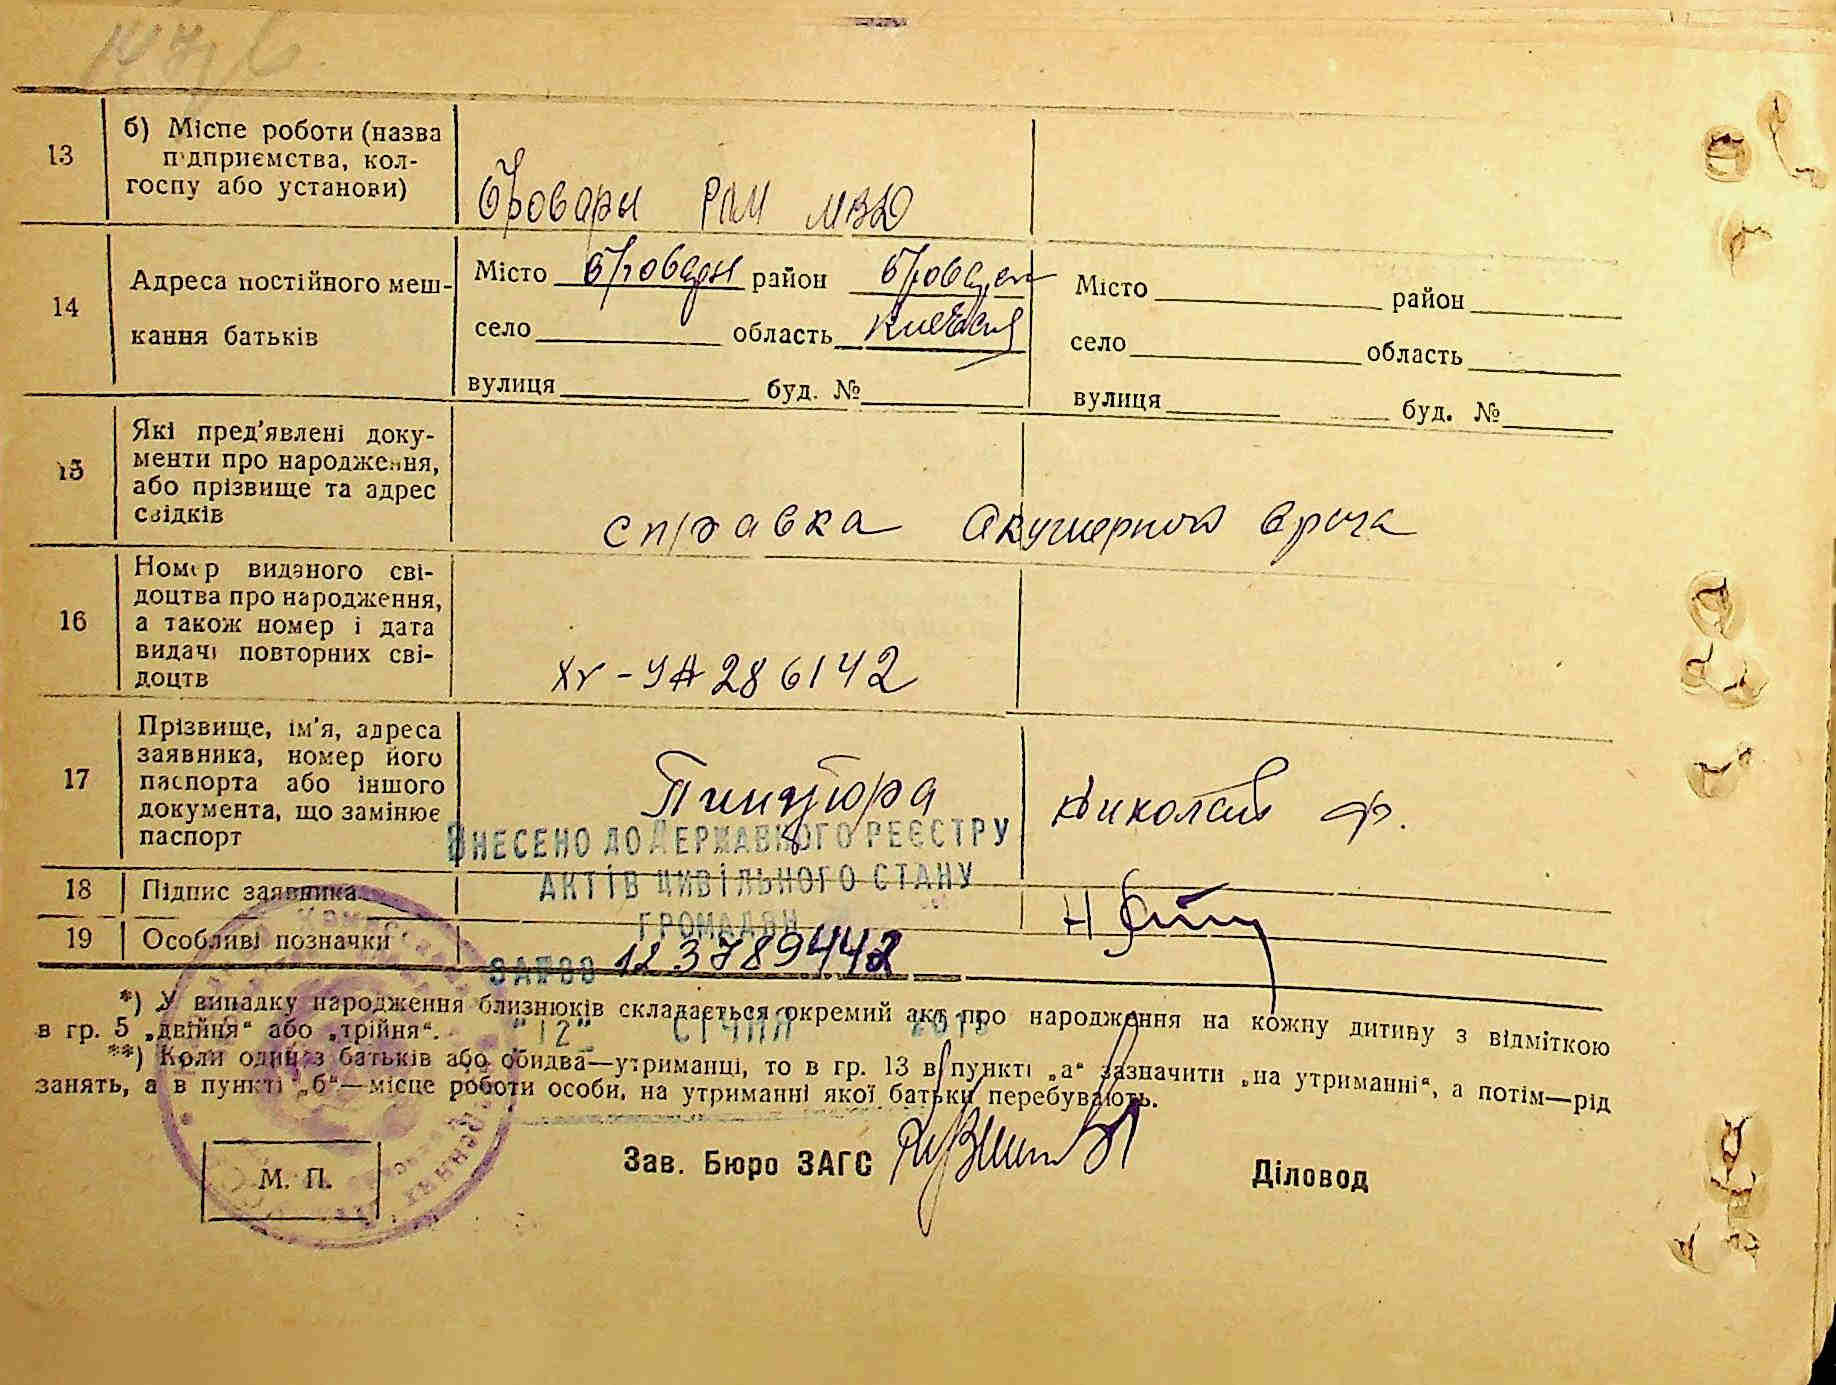 13
б) Місце роботи (назва
підприємства, кол-
госпу або установи)
Бровары РОМ МВД
14
Адреса постійного меш-
кання батьків
Місто Бровары район Бровар
Місто район
село область Киевская
село область
вулиця буд. №
вулиця буд. №
15
Які пред'явлені доку-
менти про народження,
або прізвище та адрес
свідків
справка акушерной врача
16
Номер виданого сві-
доцтва про народження,
а також номер і дата
видачі повторних сві-
доцтв
-УА 286142
17
Прізвище, ім'я, адреса
заявника, номер його
паспорта або іншого
документа, що замінює
паспорт
Николай Ф.
ВНЕСЕНО ДО ДЕРЖАВНОГО РЕЄСТРУ
АКТІВ ЦИВІЛЬНОГО СТАНУ
ГРОМАДЯН
18
Підпис заявника
19
Особливі позначки
ЗА №00 123789442
"12" СІЧНЯ
*) У випадку народження близнюків складається окремий акт про народження на кожну дитину з відміткою
в гр. 5 „двійня“ або „трійня“.
**) Коли один з батьків або обидва—утриманці, то в гр. 13 в пункті „а“ зазначити „на утриманні“, а потім—рід
занять, а в пункті „б“—місце роботи особи, на утриманні якої батьки перебувають.
Зав. Бюро ЗАГС
Діловод
М. П.